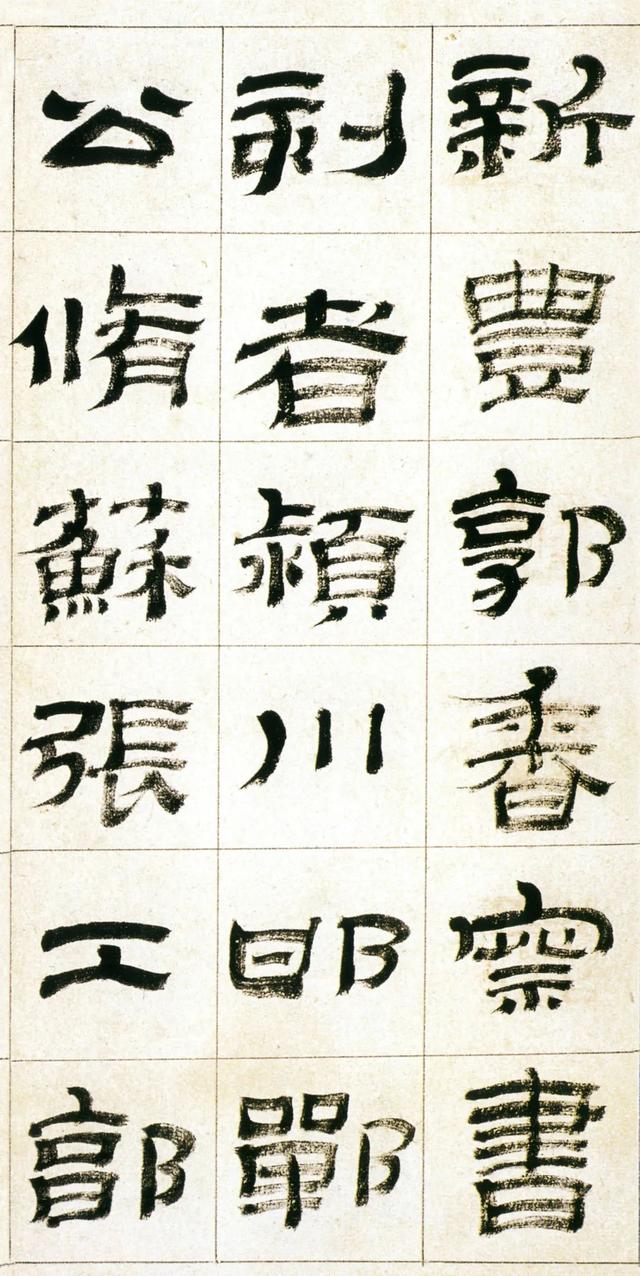 新豐郭香察書
刻者潁川邯鄲
公脩蘇張工郭